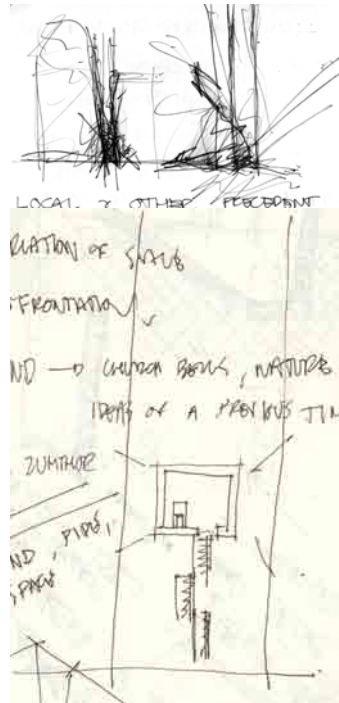 LOCAL & OTHER PRECEDENT
RIATION OF SPACE
FRONTATION
ND → CHURCH BELLS, NATURE
IDEAS OF A PREVIOUS TIM
ZUMTHOR
ND, PIPES,
SPACE